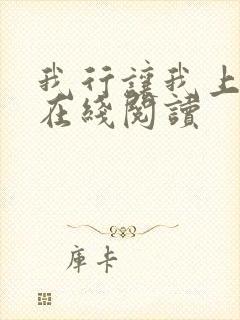 我行讓我上
在綫閱讀
庫卡